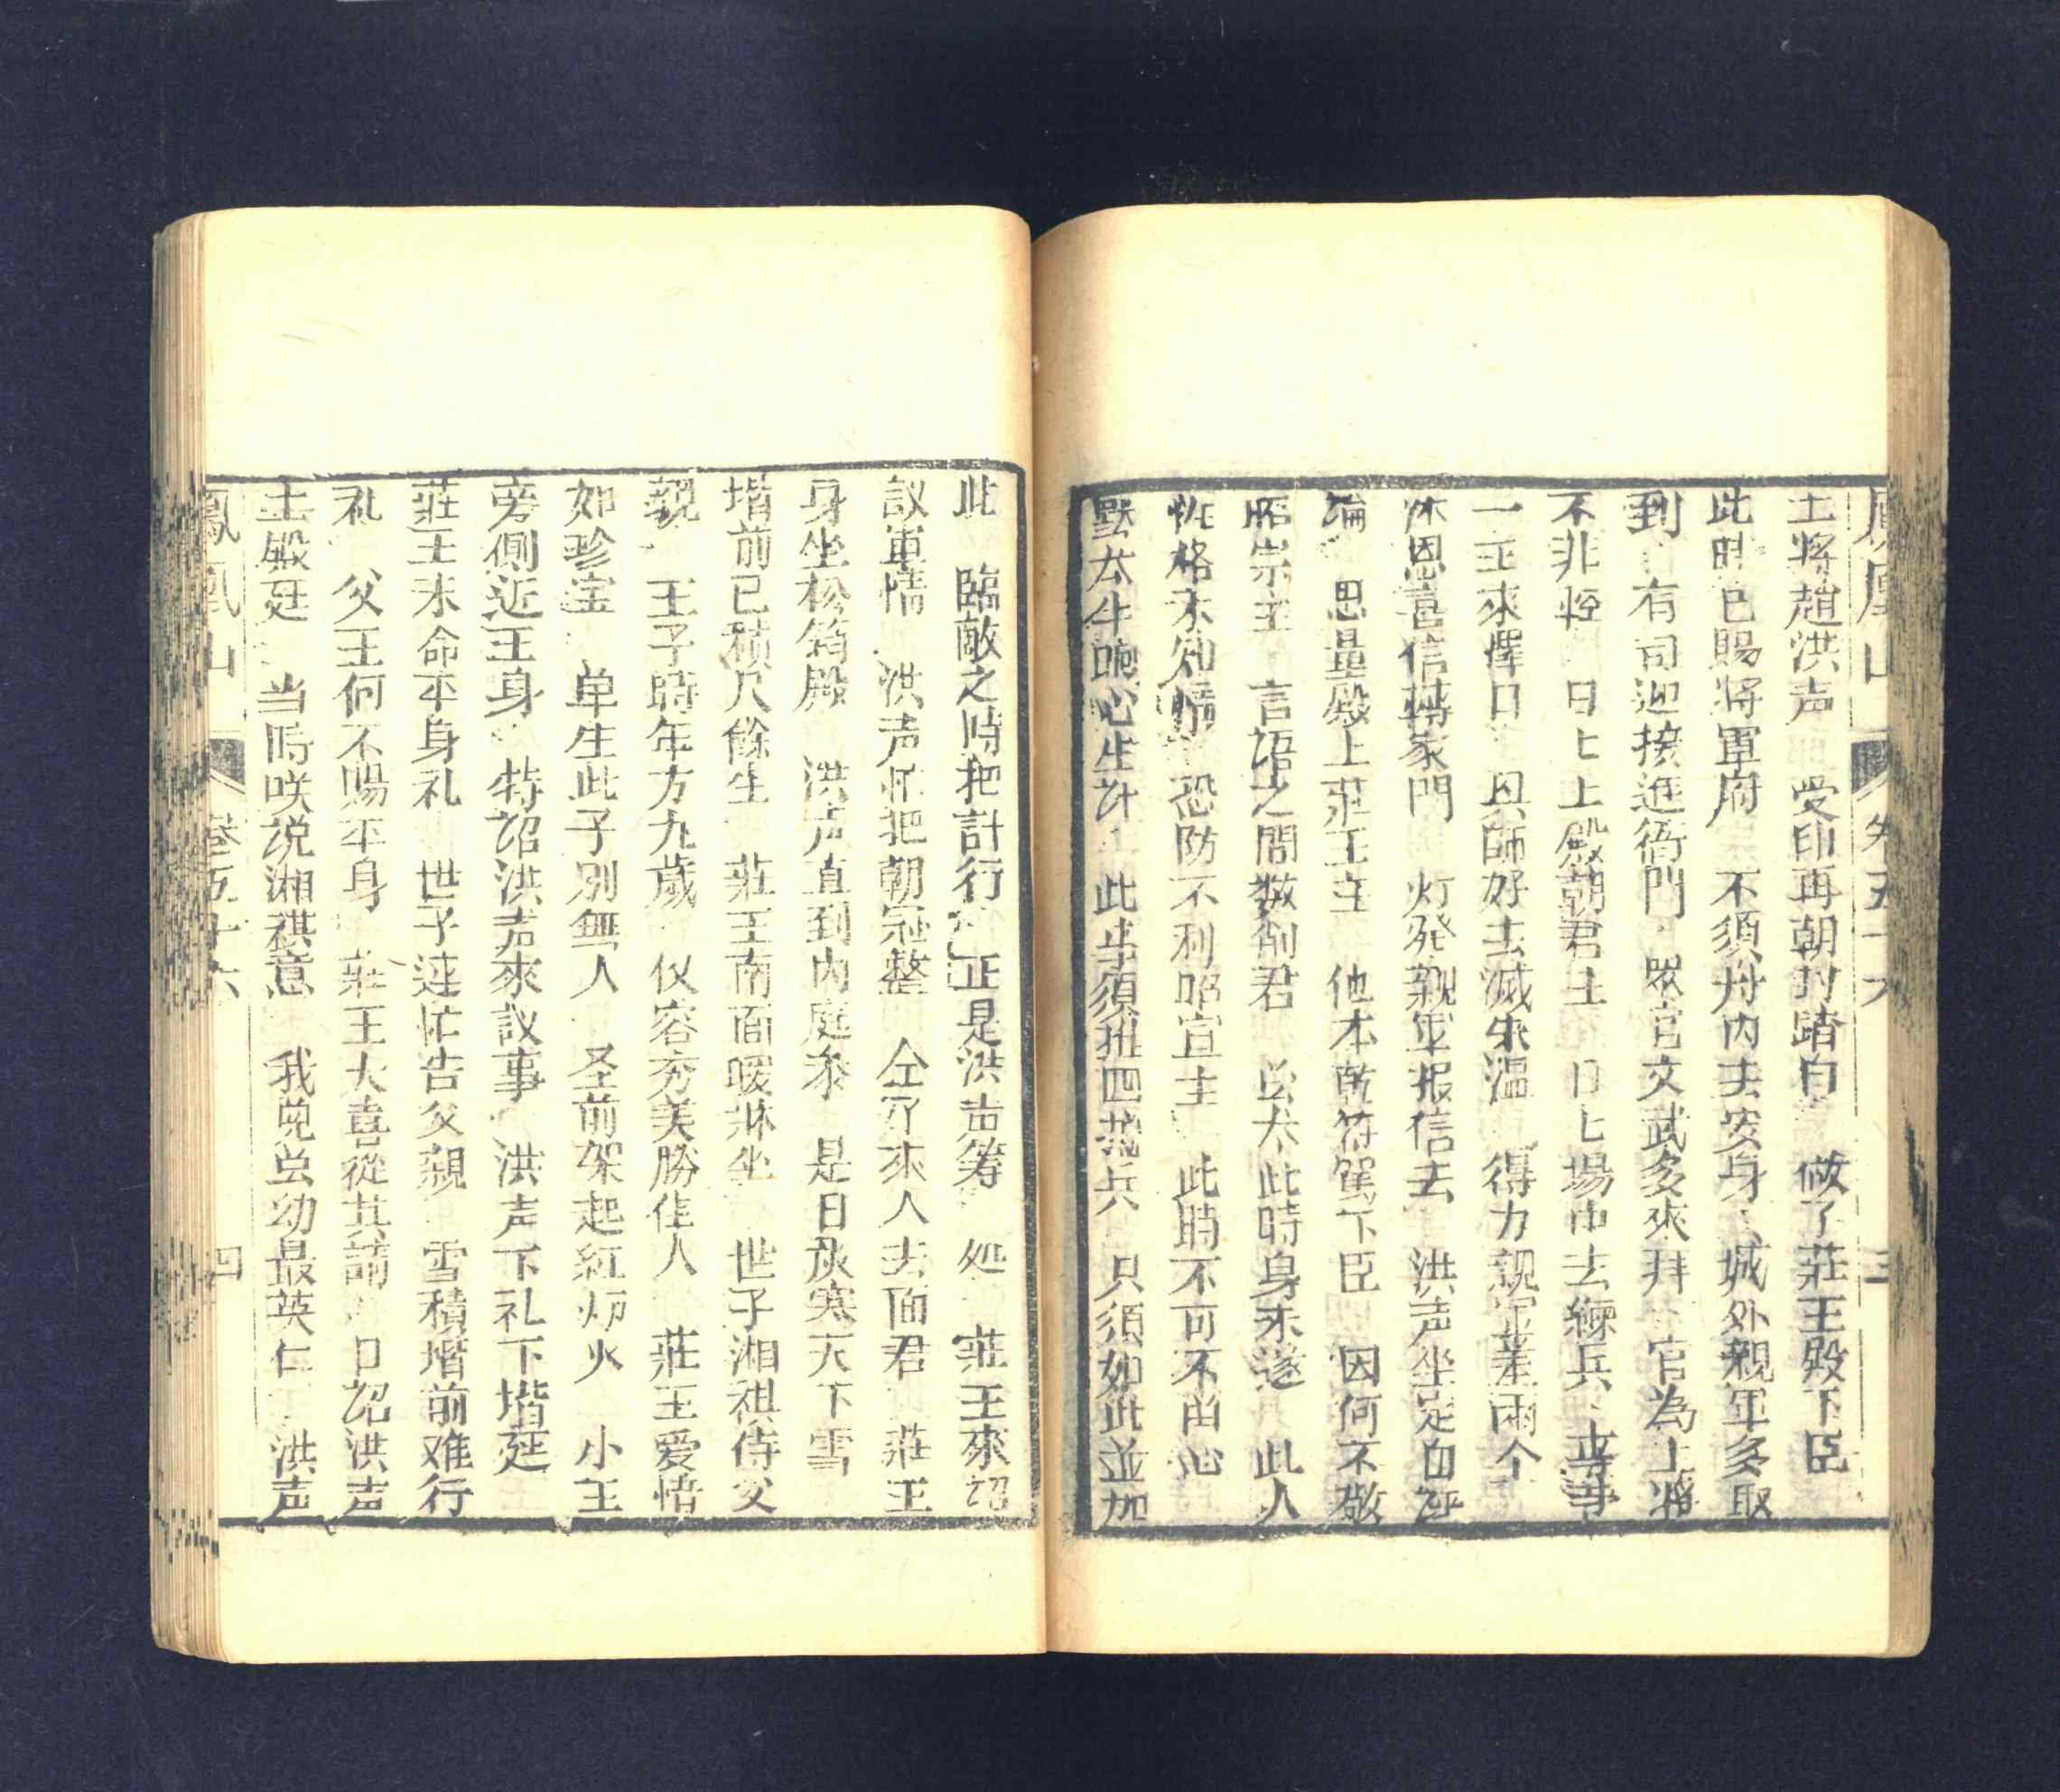 鳳凰山 卷五十六 三
上將趙洪声 受印再朝封諸白 做了莊王殿下臣
此時已賜將軍府 不須丹內去安身 城外親軍多取
到 有司迎接進衙門 眾官文武多來拜 官為上將
不非輕 日上上殿朝君主 日上場中去練兵 專等
一主來擇日 興師好去滅朱溫 得力親軍差兩个
沐恩喜信轉家門 灯発親軍报信去 洪声坐定自評
論 思量殿上莊王主 他本乾符駕下臣 因何不敬
昭宗主 言語之間数削君 此時身未遂 此人
性格不知情 恐防不利昭宣主 此時不可不留心
此步須 四 兵 只須如此並加
此 臨敵之時把計行 正是洪声筹 处 莊王來詔
議軍情 洪声忙把朝冠整 仝了來人去面君 莊王
身坐松筠殿 洪声直到內庭参 是日成寒天下雪
堦前已積尺餘生 莊王南面暖牀坐 世子湘祺侍父
親 王子時年方九歲 仪容秀美勝佳人 莊王爱惜
如珍宝 单生此子别無人 圣前架起紅炉火 小王
旁側近王身 特詔洪声來議事 洪声下礼下堦廷
莊王未命平身礼 世子連忙告父親 雪積堦前难行
礼 父王何不賜平身 莊王大喜從其請 口詔洪声
上殿廷 当時咲說湘祺意 我兒虽幼最英仁 洪声
鳳凰山 卷五十六 四